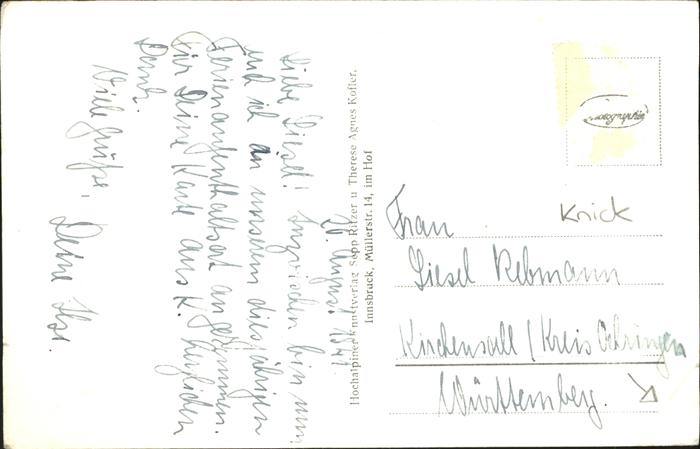 10. August 1941
Liebe Liesel! Inzwischen bin nun
auch ich an unserem diesjährigen
Ferienaufenthaltsort angekommen.
Für Deine Karte aus K. herzlichen
Dank.
Viele Grüße,
Deine Ilse.
Hochalpiner Kunstverlag Sepp Ritzer u Therese Agnes Kofler,
Innsbruck, Müllerstr. 14, im Hof
Knick
Frau
Liesel Rebmann
Kirchensall / Kreis Öhringen
Württemberg.